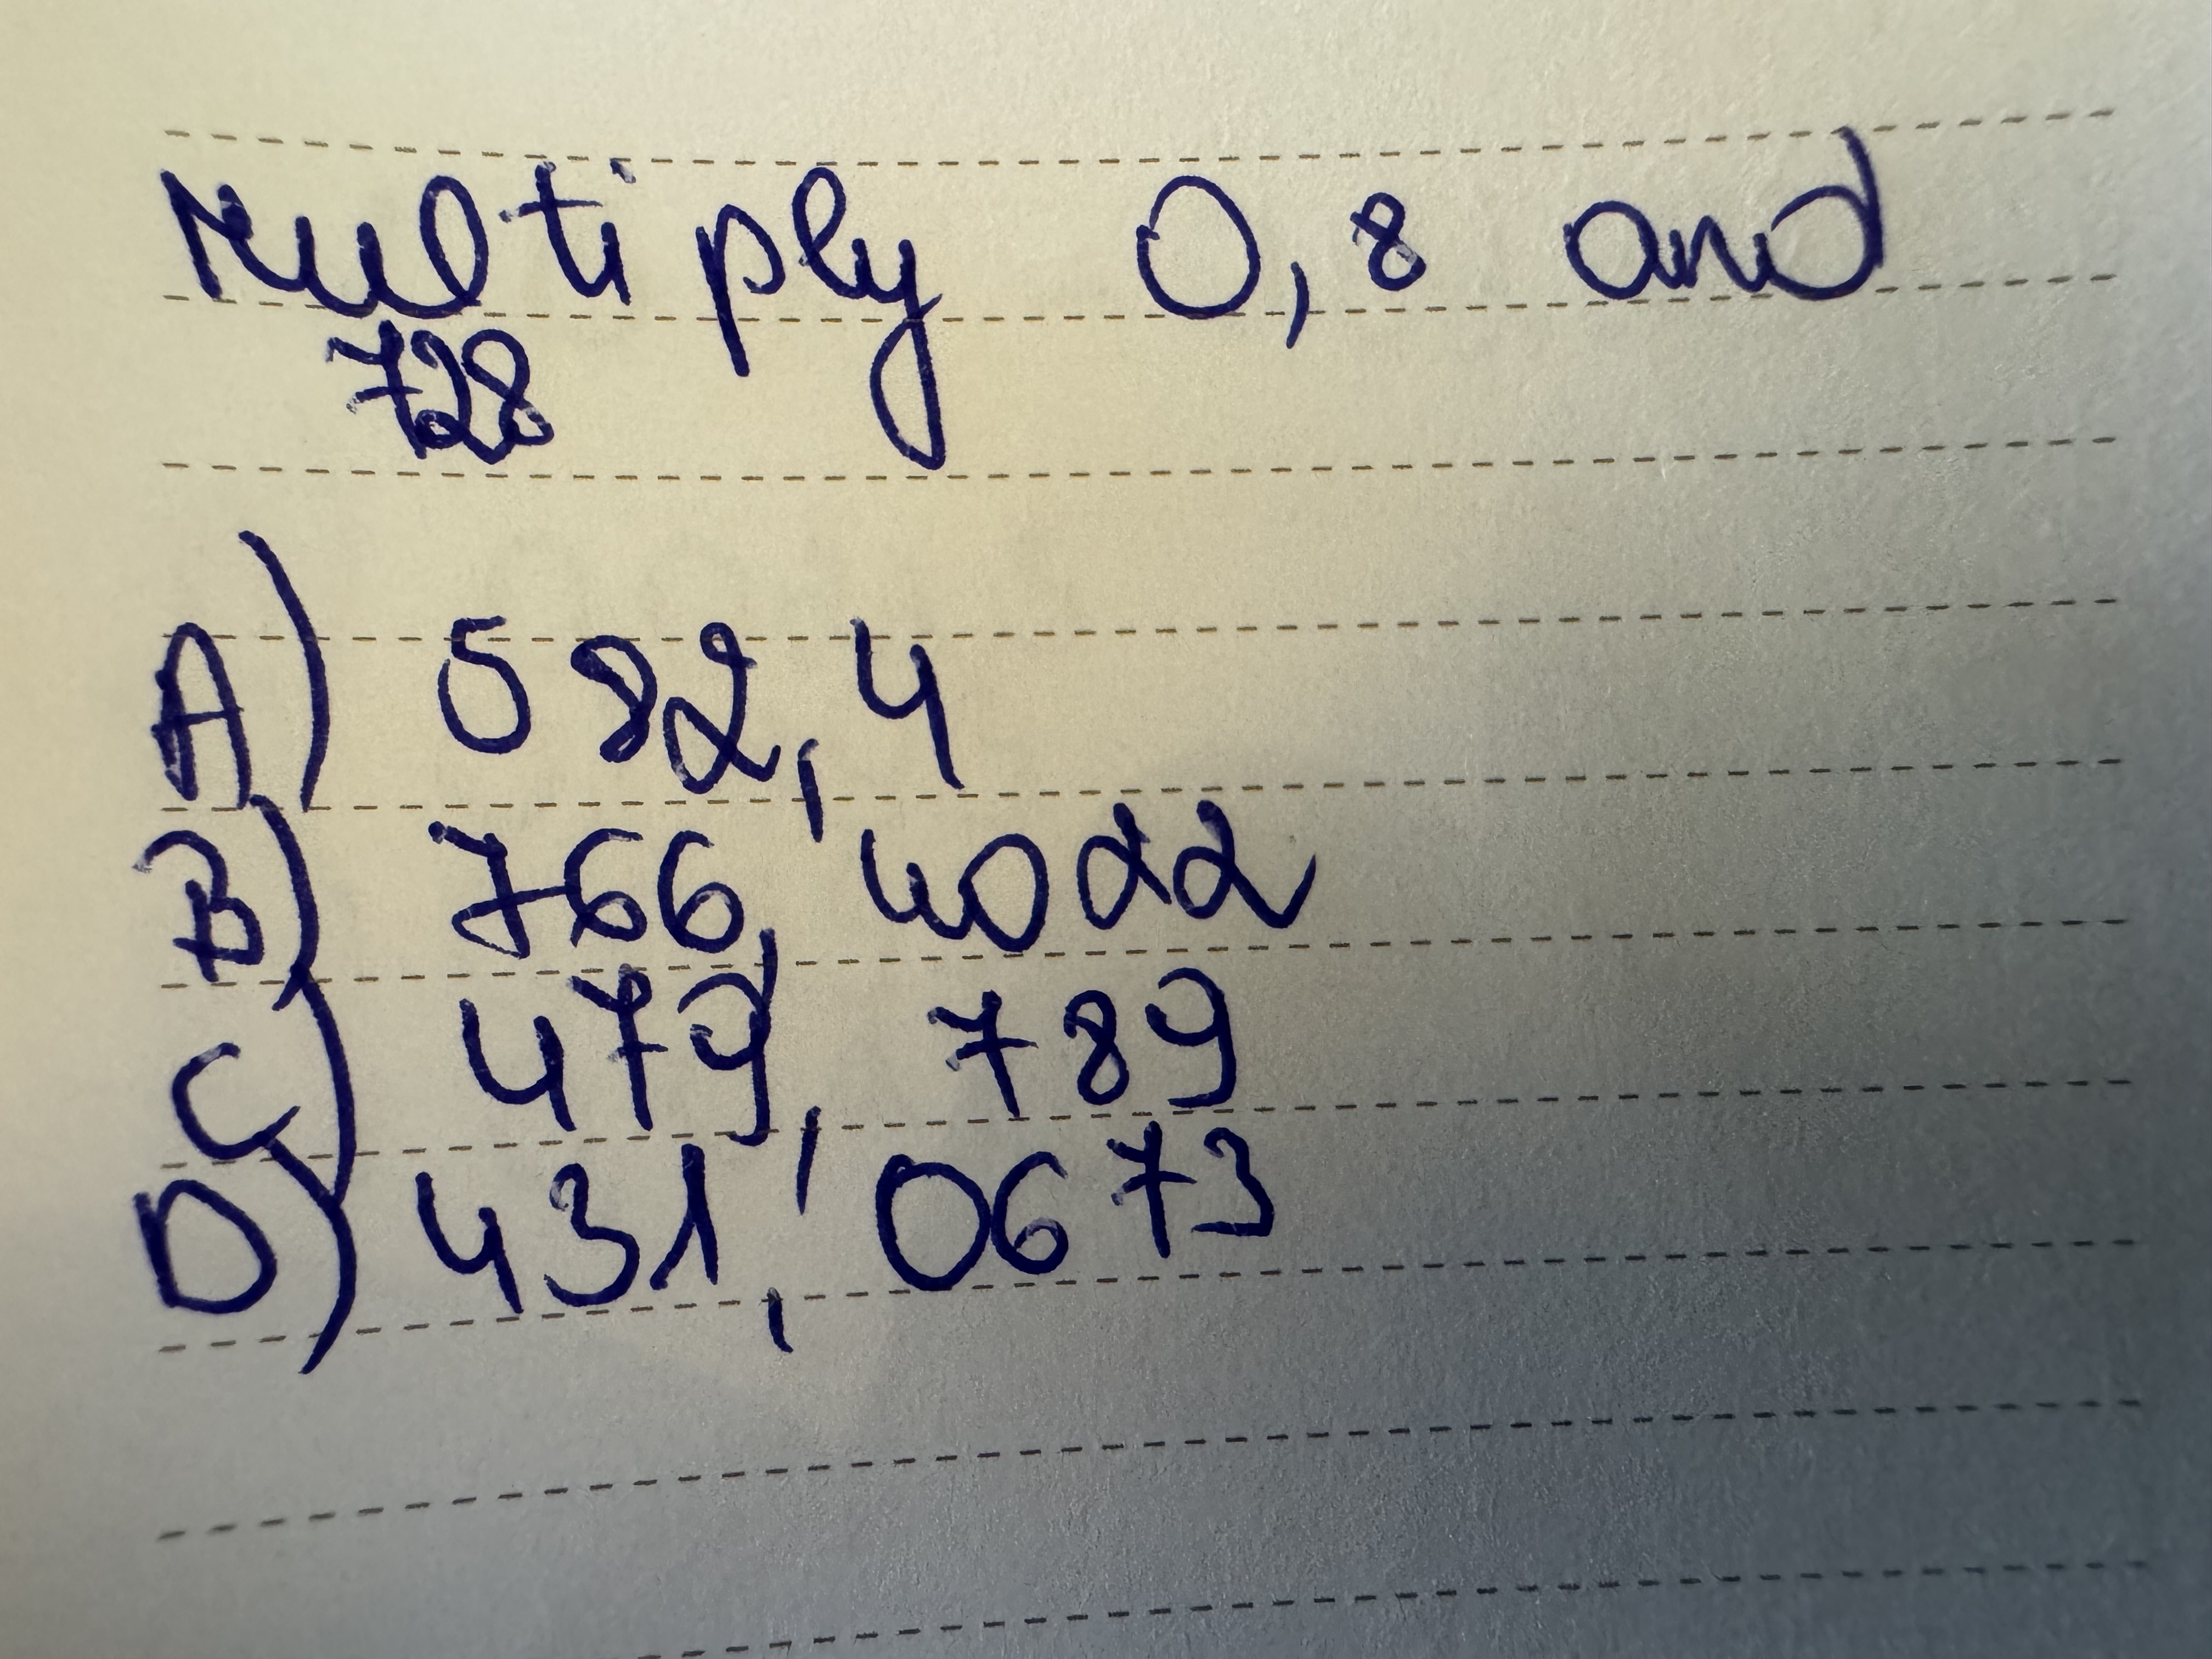 Multiply 0,8 and
728
A) 582,4
B) 766,4022
C) 479,789
D) 431,0673